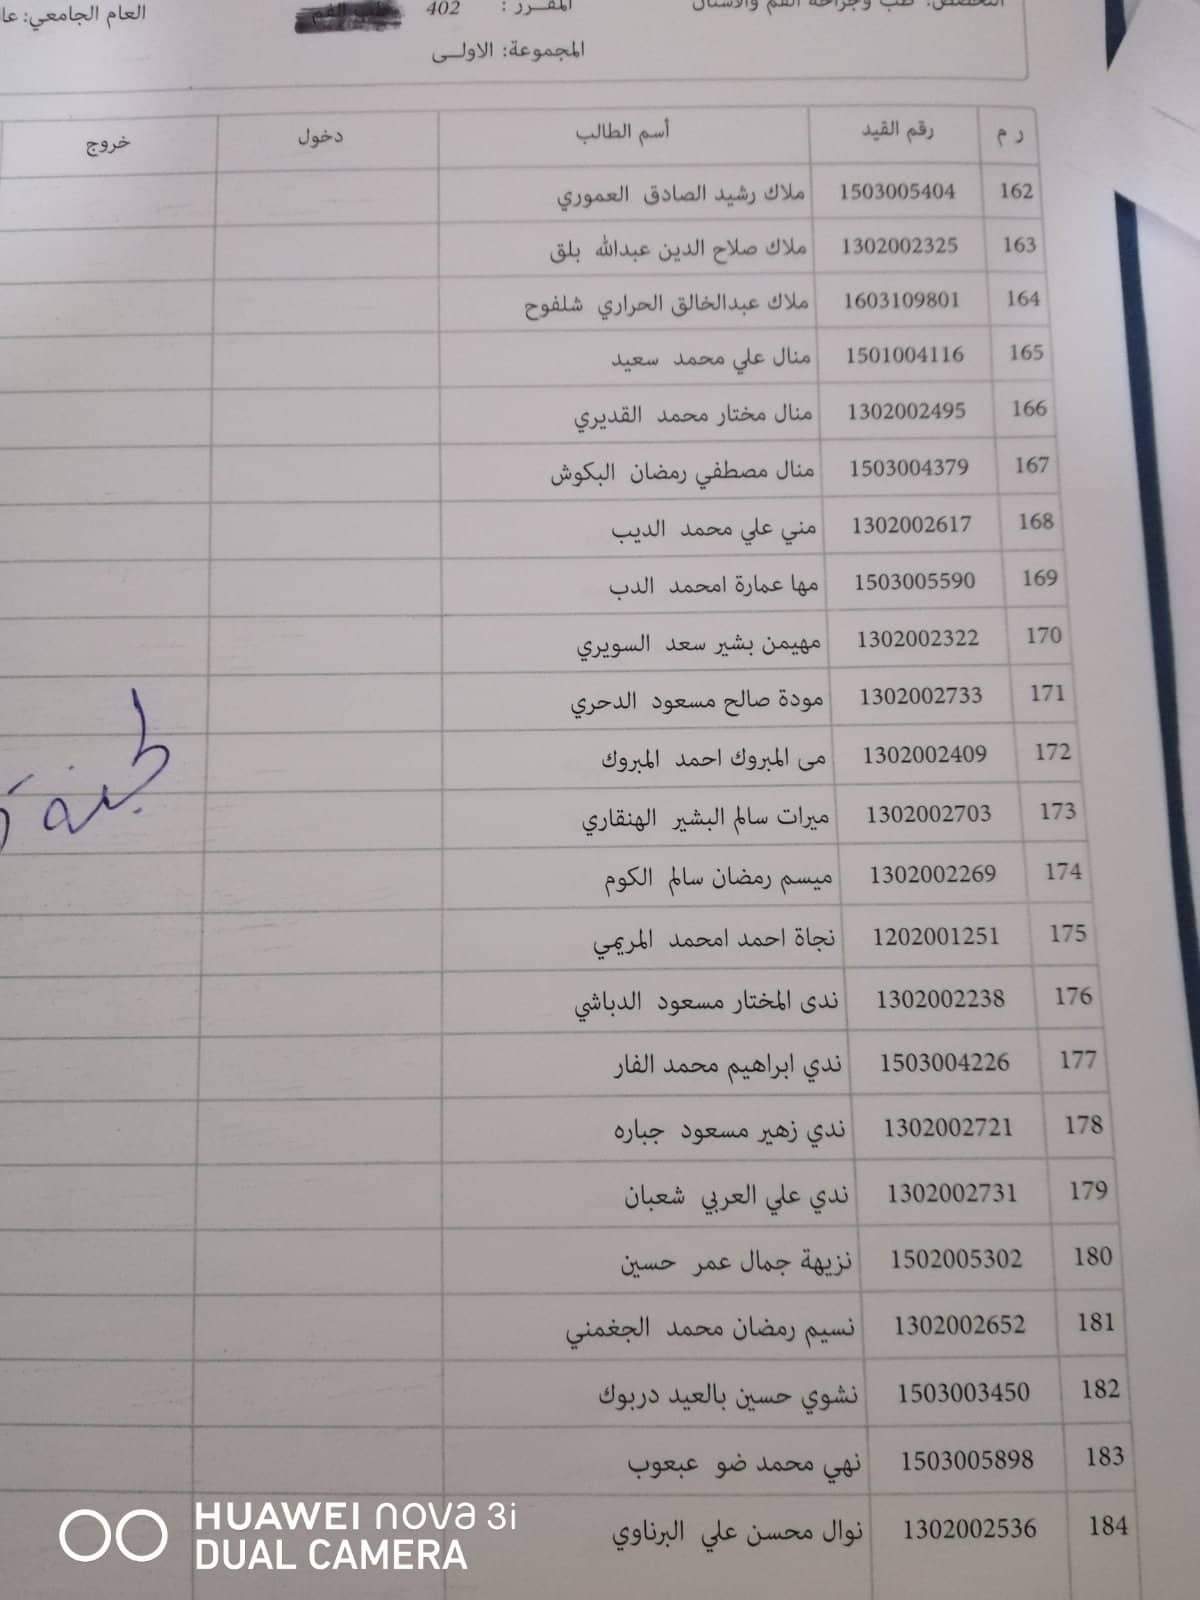 التخصص: طب وجراحة الفم والاسنان المقرر : 402 العام الجامعي:
المجموعة: الاولى
ر م رقم القيد أسم الطالب دخول خروج
162 1503005404 ملاك رشيد الصادق العموري
163 1302002325 ملاك صلاح الدين عبدالله بلق
164 1603109801 ملاك عبدالخالق الحراري شلفوح
165 1501004116 منال علي محمد سعيد
166 1302002495 منال مختار محمد القديري
167 1503004379 منال مصطفي رمضان البكوش
168 1302002617 مني علي محمد الديب
169 1503005590 مها عمارة امحمد الدب
170 1302002322 مهيمن بشير سعد السويري
171 1302002733 مودة صالح مسعود الدحري
172 1302002409 مى المبروك احمد المبروك
173 1302002703 ميرات سالم البشير الهنقاري
174 1302002269 ميسم رمضان سالم الكوم
175 1202001251 نجاة احمد امحمد المريمي
176 1302002238 ندى المختار مسعود الدباشي
177 1503004226 ندي ابراهيم محمد الفار
178 1302002721 ندي زهير مسعود جباره
179 1302002731 ندي علي العربي شعبان
180 1502005302 نزيهة جمال عمر حسين
181 1302002652 نسيم رمضان محمد الجغمني
182 1503003450 نشوي حسين بالعيد دربوك
183 1503005898 نهي محمد ضو عبعوب
184 1302002536 نوال محسن علي البرناوي
لجنة
HUAWEI nova 3i
DUAL CAMERA